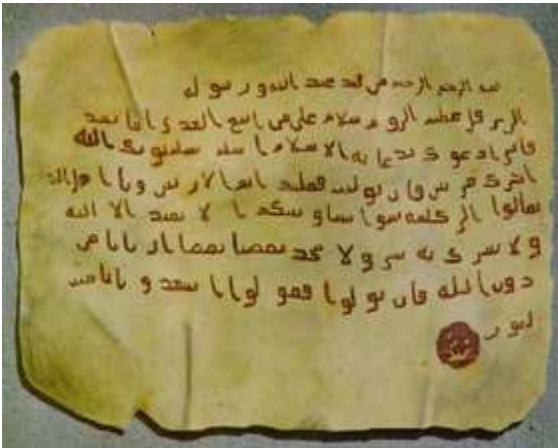 بسم الله الرحمن الرحيم من محمد عبد الله و رسوله
الى هرقل عظيم الروم سلام على من اتبع الهدى اما بعد
فانى ادعوك بدعاية الاسلام اسلم تسلم يوتك الله
اجرك مرتين فان توليت فعليك اثم الاريسين ويا اهل الكتب
تعالوا الى كلمة سوا بيننا وبينكم ا لا نعبد الا الله
ولا نشرك به شيا ولا يتخذ بعضنا بعضا اربابا من
دون الله فان تولوا فقولوا اشهدوا بانا مسلمو
ن